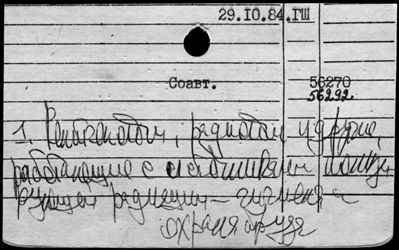 29.10.84.ГШ
Соавт. 56270
56292.
1. Рентгенологи, радиологи и другие,
работающие с источниками ионизи
рующей радиации – гигиена и
охрана труда